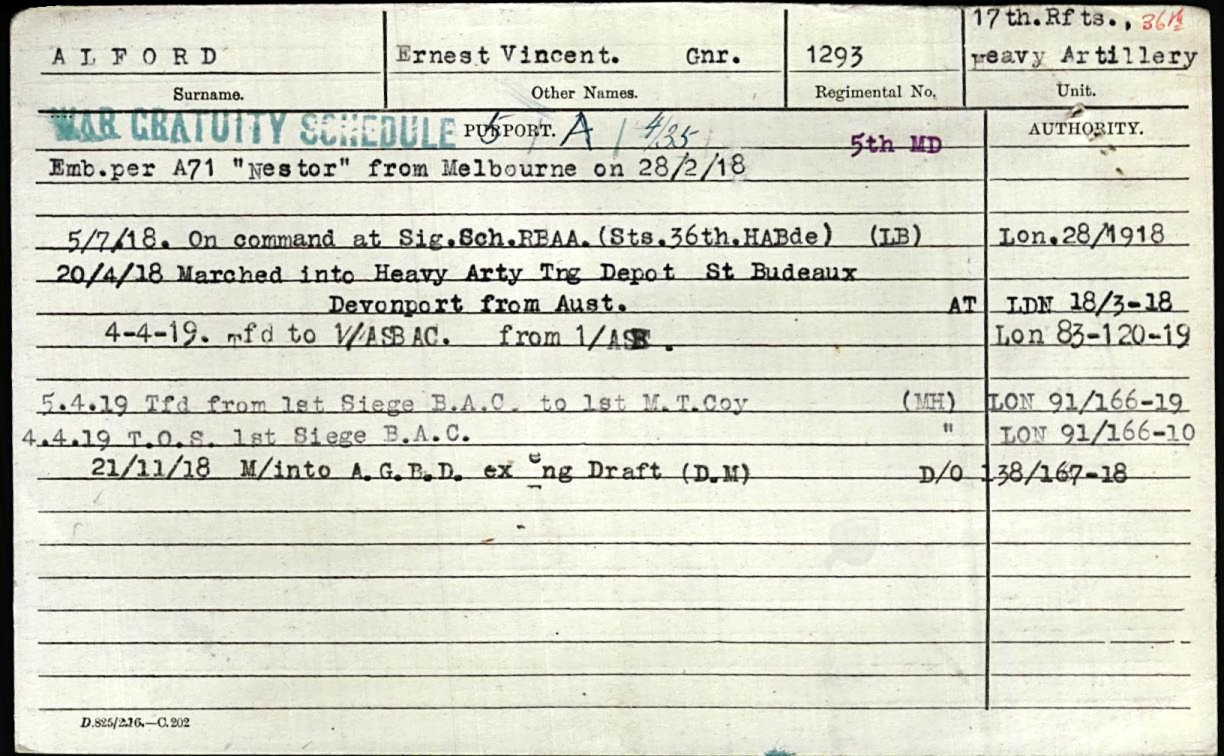 17th.Rfts., 36th
ALFORD Ernest Vincent. Gnr. 1293 Heavy Artillery
Surname. Other Names. Regimental No. Unit.
WAR GRATUITY SCHEDULE PURPORT. 5 A 4/35 5th MD AUTHORITY.
Emb.per A71 "Nestor" from Melbourne on 28/2/18
5/7/18. On command at Sig.Sch.RBAA.(Sts.36th.HABde) (LB) Lon.28/1918
20/4/18 Marched into Heavy Arty Tng Depot St Budeaux
Devonport from Aust. AT LDN 18/3-18
4-4-19. Tfd to 1/ASBAC. from 1/ASB. Lon 83-120-19
5.4.19 Tfd from 1st Siege B.A.C. to 1st M.T.Coy (MH) LON 91/166-19
4.4.19 T.O.S. 1st Siege B.A.C. " LON 91/166-10
21/11/18 M/into A.G.B.D. ex Eng Draft (D.M) D/O 138/167-18
D.825/2.16.—C.202